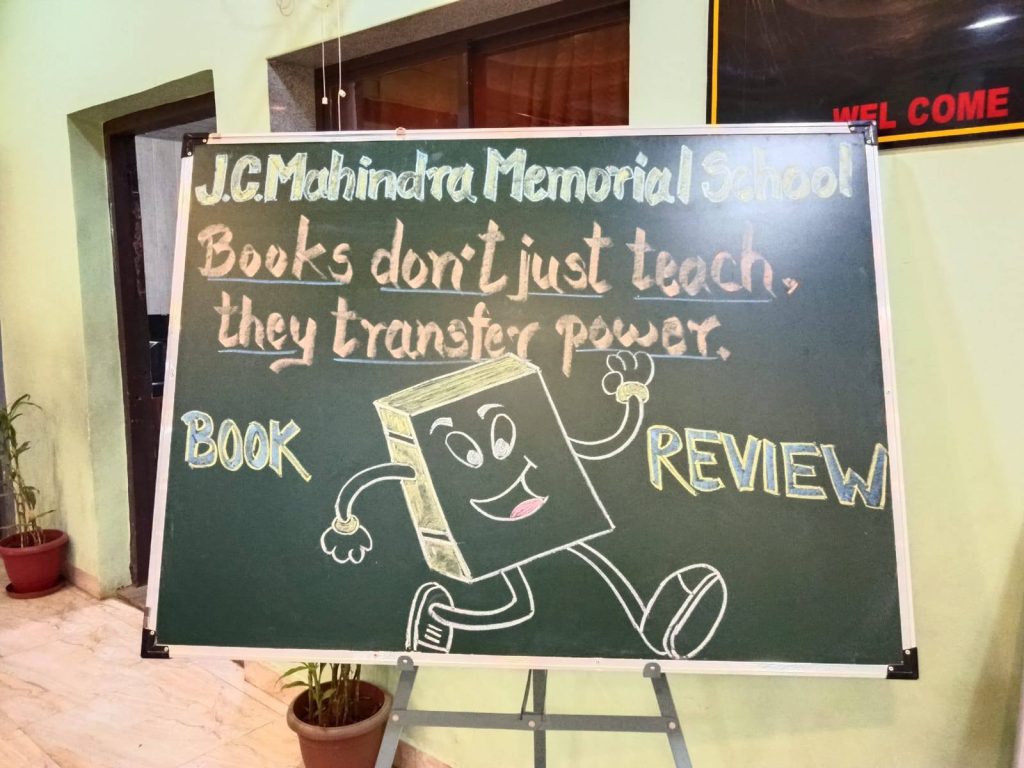 WEL COME
J.C.Mahindra Memorial School
Books don't just teach,
they transfer power.
BOOK REVIEW